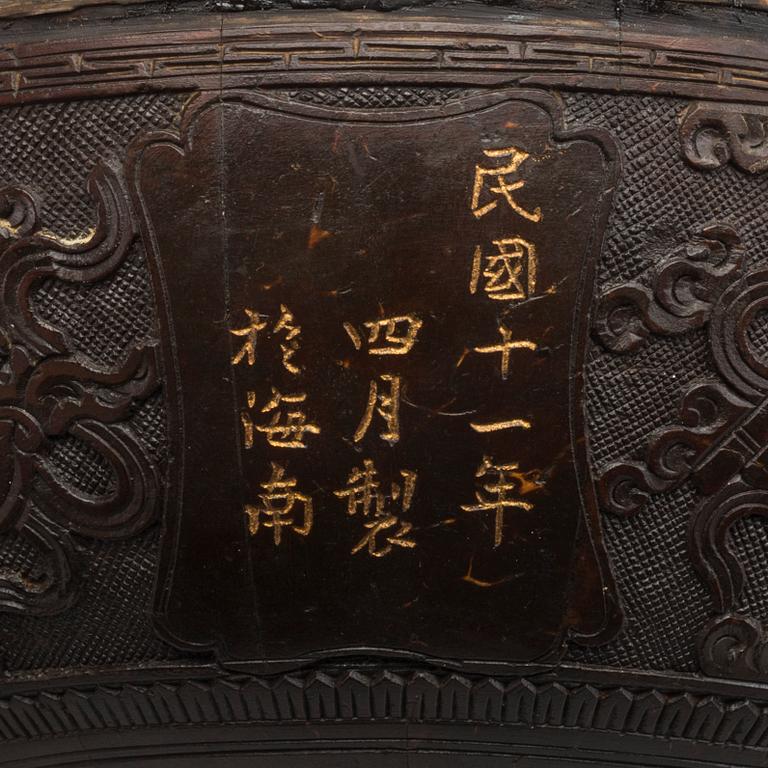 民國十一年
四月製
於海南